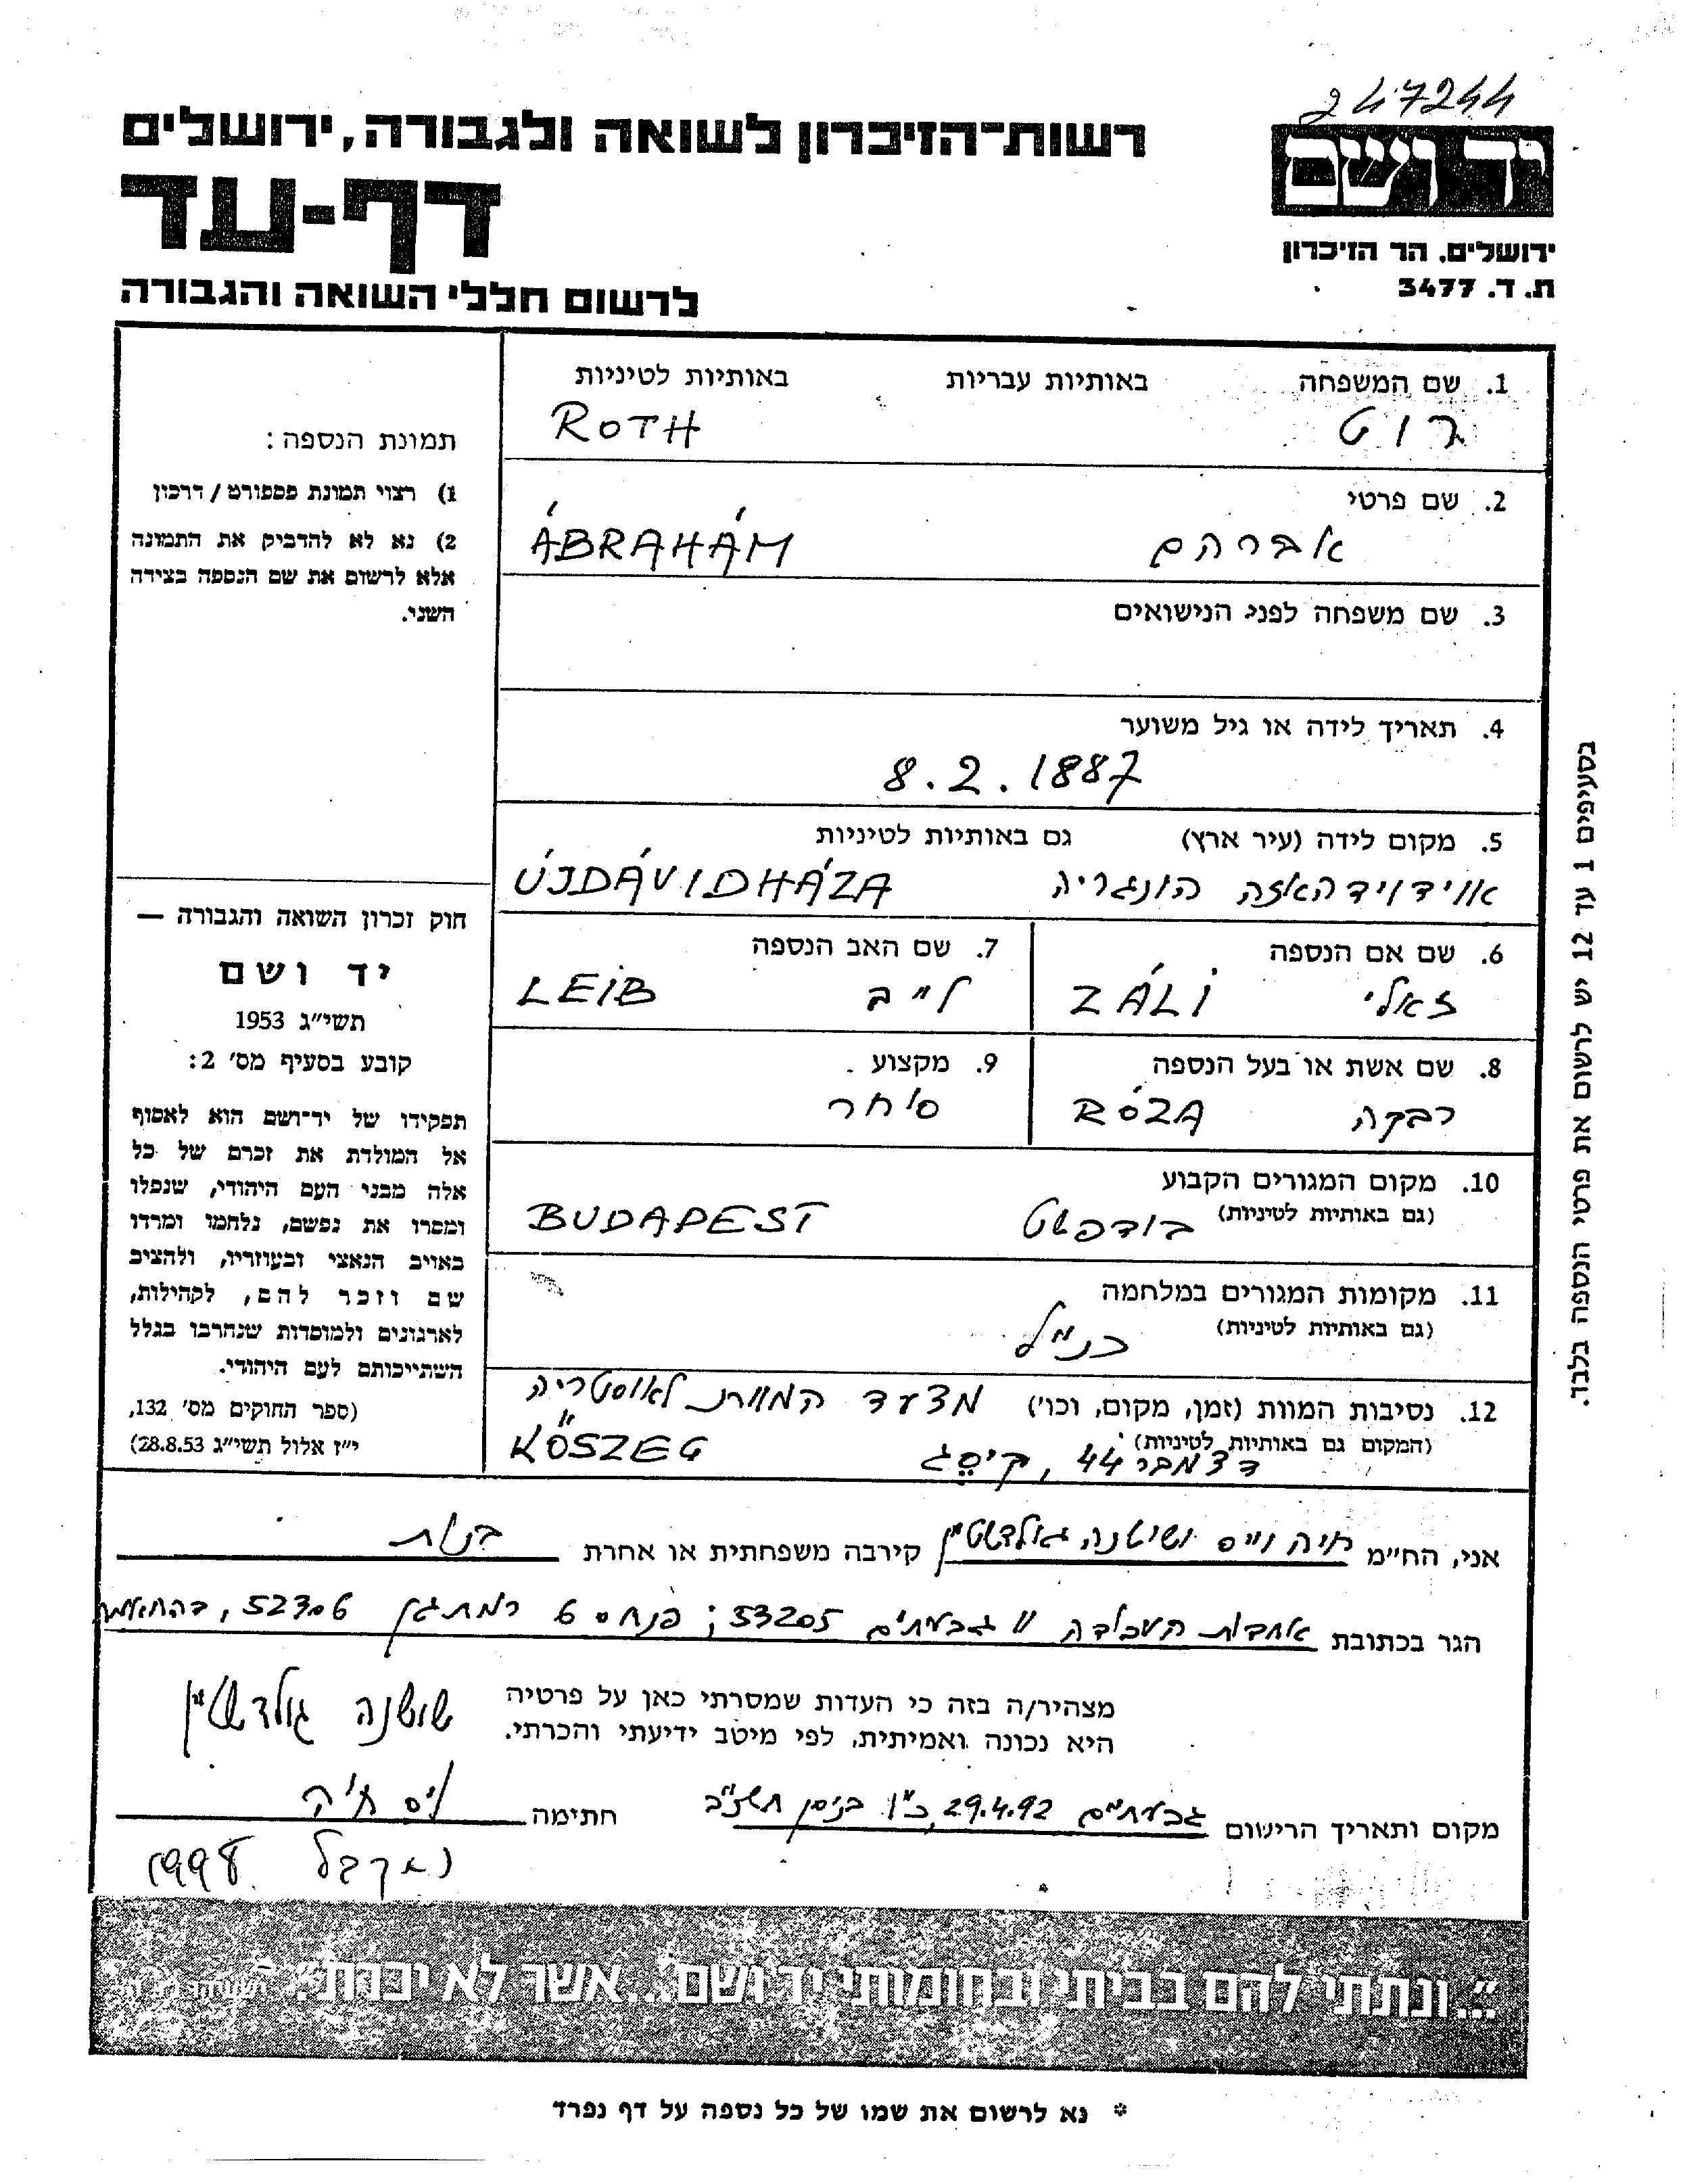 247244
יד ושם
ירושלים, הר הזיכרון
ת. ד. 3477
רשות־הזיכרון לשואה ולגבורה, ירושלים
דף-עד
לרשום חללי השואה והגבורה
תמונת הנספה:
1) רצוי תמונת פספורט/דרכון
2) נא לא להדביק את התמונה
אלא לרשום את שם הנספה בצידה
השני.
חוק זכרון השואה והגבורה —
יד ושם
תשי״ג 1953
קובע בסעיף מס׳ 2:
תפקידו של יד־ושם הוא לאסוף
אל המולדת את זכרם של כל
אלה מבני העם היהודי, שנפלו
ומסרו את נפשם, נלחמו ומרדו
באויב הנאצי ובעוזריו, ולהציב
שם וזכר להם, לקהילות,
לארגונים ולמוסדות שנחרבו בגלל
השתייכותם לעם היהודי.
(ספר החוקים מס׳ 132,
י״ז אלול תשי״ג 28.8.53)
1. שם המשפחה באותיות עבריות באותיות לטיניות
רוט ROTH
2. שם פרטי
אברהם ÁBRAHÁM
3. שם משפחה לפני הנישואים
4. תאריך לידה או גיל משוער
8.2.1887
5. מקום לידה (עיר ארץ) גם באותיות לטיניות
אוידוידהאזה הונגריה ÚJDÁVIDHÁZA
6. שם אם הנספה 7. שם האב הנספה
זאלי ZÁLI לייב LEIB
8. שם אשת או בעל הנספה 9. מקצוע
רבקה RÓZA סוחר
10. מקום המגורים הקבוע
(גם באותיות לטיניות) בודפשט BUDAPEST
11. מקומות המגורים במלחמה
(גם באותיות לטיניות) כנ״ל
12. נסיבות המוות (זמן, מקום, וכו׳) מצעד המוות לאוסטריה
(המקום גם באותיות לטיניות) דצמבר 44, קיסג KŐSZEG
בסעיפים 1 עד 12 יש לרשום את פרטי הנספה בלבד.
אני, הח״מ חיה וייס ושושנה גולדשטיין קירבה משפחתית או אחרת בנות
הגר בכתובת אחדות העבודה 11 גבעתיים 53205; פנחס 6 רמת גן 52306, בהתאמה
מצהיר/ה בזה כי העדות שמסרתי כאן על פרטיה
היא נכונה ואמיתית, לפי מיטב ידיעתי והכרתי.
שושנה גולדשטיין
מקום ותאריך הרישום גבעתיים 29.4.92, כ״ו בניסן תשנ״ב חתימה ויס חיה
נתקבל 1998
״...ונתתי להם בביתי ובחומותי יד ושם...אשר לא יכרת״.
* נא לרשום את שמו של כל נספה על דף נפרד